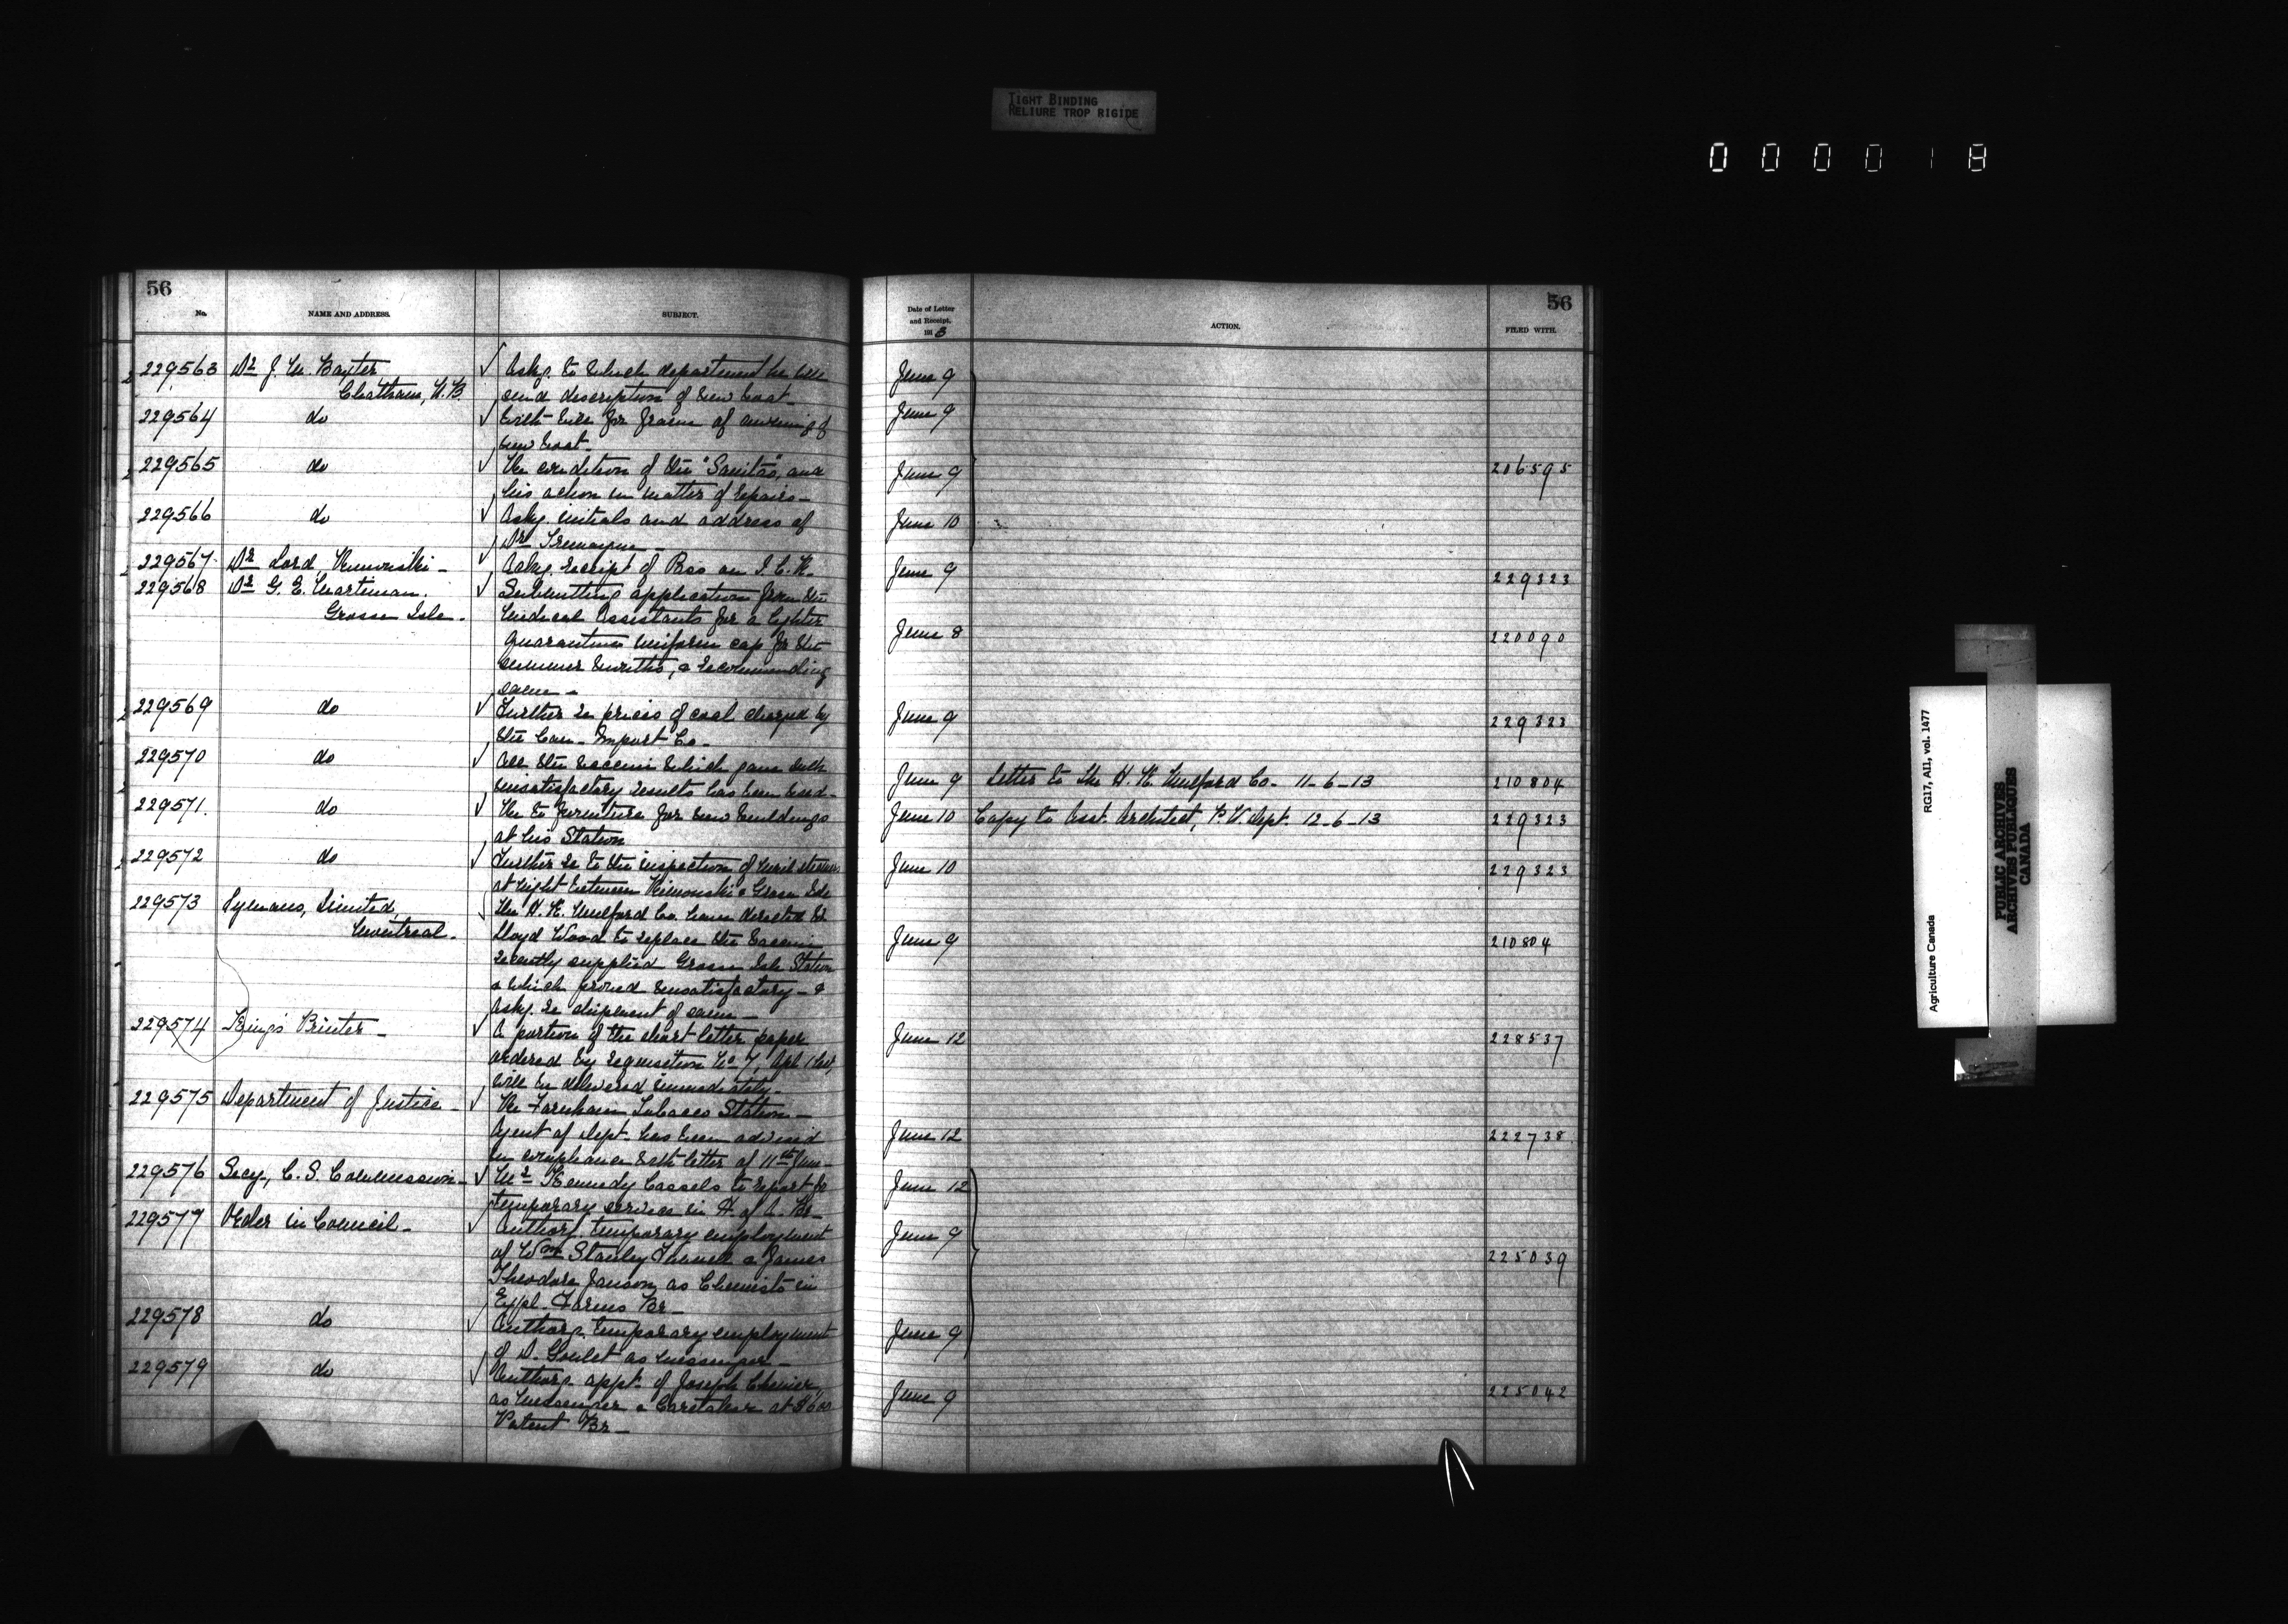 TIGHT BINDING
RELIURE TROP RIGIDE
0 0 0 0 1 8
56
No. NAME AND ADDRESS. SUBJECT.
229563 Dr J. M. Baxter ✓ Askg. to which department he will
Chatham, N.B. send description of new boat
229564 do ✓ With bill for frame of awning of
new boat
229565 do ✓ The condition of the "Sanitas", and
his action in matter of repairs —
229566 do ✓ Askg. initials and address of
Dr Tremayne —
229567 Dr Lord, Rimouski — ✓ Askg. receipt of Pass on I. C. R.
229568 Dr G. E. Martineau. ✓ Submitting application from the
Grosse Isle. Medical Assistants for a lighter
quarantine uniform cap for the
summer months, & recommending
same —
229569 do ✓ Further re prices of coal charged by
the Can. Import Co. —
229570 do ✓ All the vaccine which gave such
unsatisfactory results has been used —
229571. do ✓ Re to furniture for new buildings
at his Station
229572 do ✓ Further re to the inspection of mail steamers
at night between Rimouski & Grosse Isle
229573 Lymans, Limited, ✓ The H. K. Mulford Co. have directed Dr
Montreal. Lloyd Wood to replace the vaccine
recently supplied Grosse Isle Station
& which proved unsatisfactory — &
Askg. re shipment of same —
229574 King's Printer — ✓ A portion of the short letter paper
ordered by requisition No 7, Apl. 1 last,
will be delivered immediately —
229575 Department of Justice — ✓ Re Farnham Tobacco Station —
Agent of Dept. has been advised
in compliance with letter of 11th June —
229576 Secy., C. S. Commission — ✓ Mr Kennedy Cassels to report for
temporary service in H. of A. Br —
229577 Order in Council — ✓ Authorg. temporary employment
of Wm Stanley & James
Theodore Janson as Chemists in
Expl. Farms Br —
229578 do ✓ Authorg. temporary employment
of D. Goulet as messenger —
229579 do ✓ Authorg. appt. of Joseph Chenier,
as Messenger & Caretaker at $600
Patent Br —
56
Date of Letter
and Receipt,
191 3
ACTION. FILED WITH.
June 9
June 9
June 9 206595
June 10
June 9 229323
June 8 220090
June 9 229323
June 9 Letter to the H. K. Mulford Co. 11-6-13 210804
June 10 Copy to Asst. Architect, P. W. Dept. 12-6-13 229323
June 10 229323
June 9 210804
June 12 228537
June 12 222738
June 12
June 9 225039
June 9
June 9 225042
Agriculture Canada RG17, AII, vol. 1477
PUBLIC ARCHIVES
ARCHIVES PUBLIQUES
CANADA